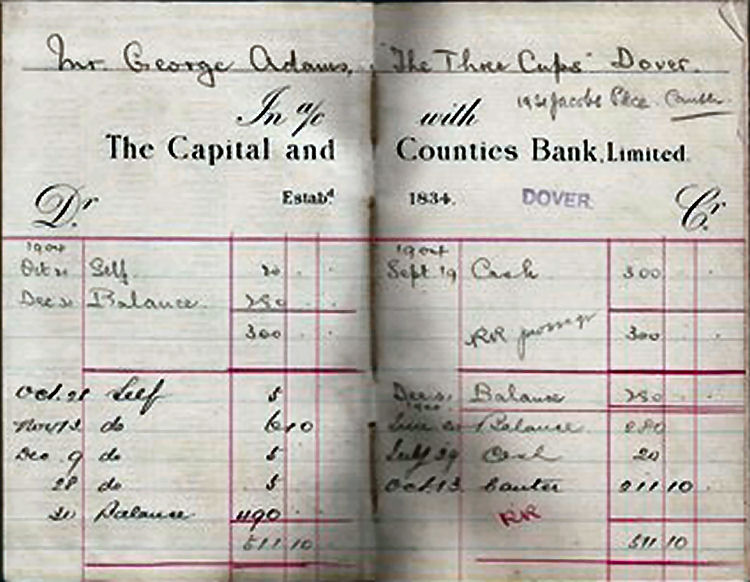 Mr. George Adams, "The Three Cups" Dover.
In a/c with
The Capital and Counties Bank, Limited.
Estabd 1834. DOVER
Dr Cr
1904
Oct 21 Self 20
Dec 31 Balance 280
300
Oct. 28 Self 5
Nov 13 do 6 10
Dec 9 do 5
28 do 5
31 Balance 490
511 10
1904
Sept 19 Cash 300
RR 300
Dec 31 Balance 280
Balance 280
July 29 Cash 20
Oct. 13 211 10
RR
511 10